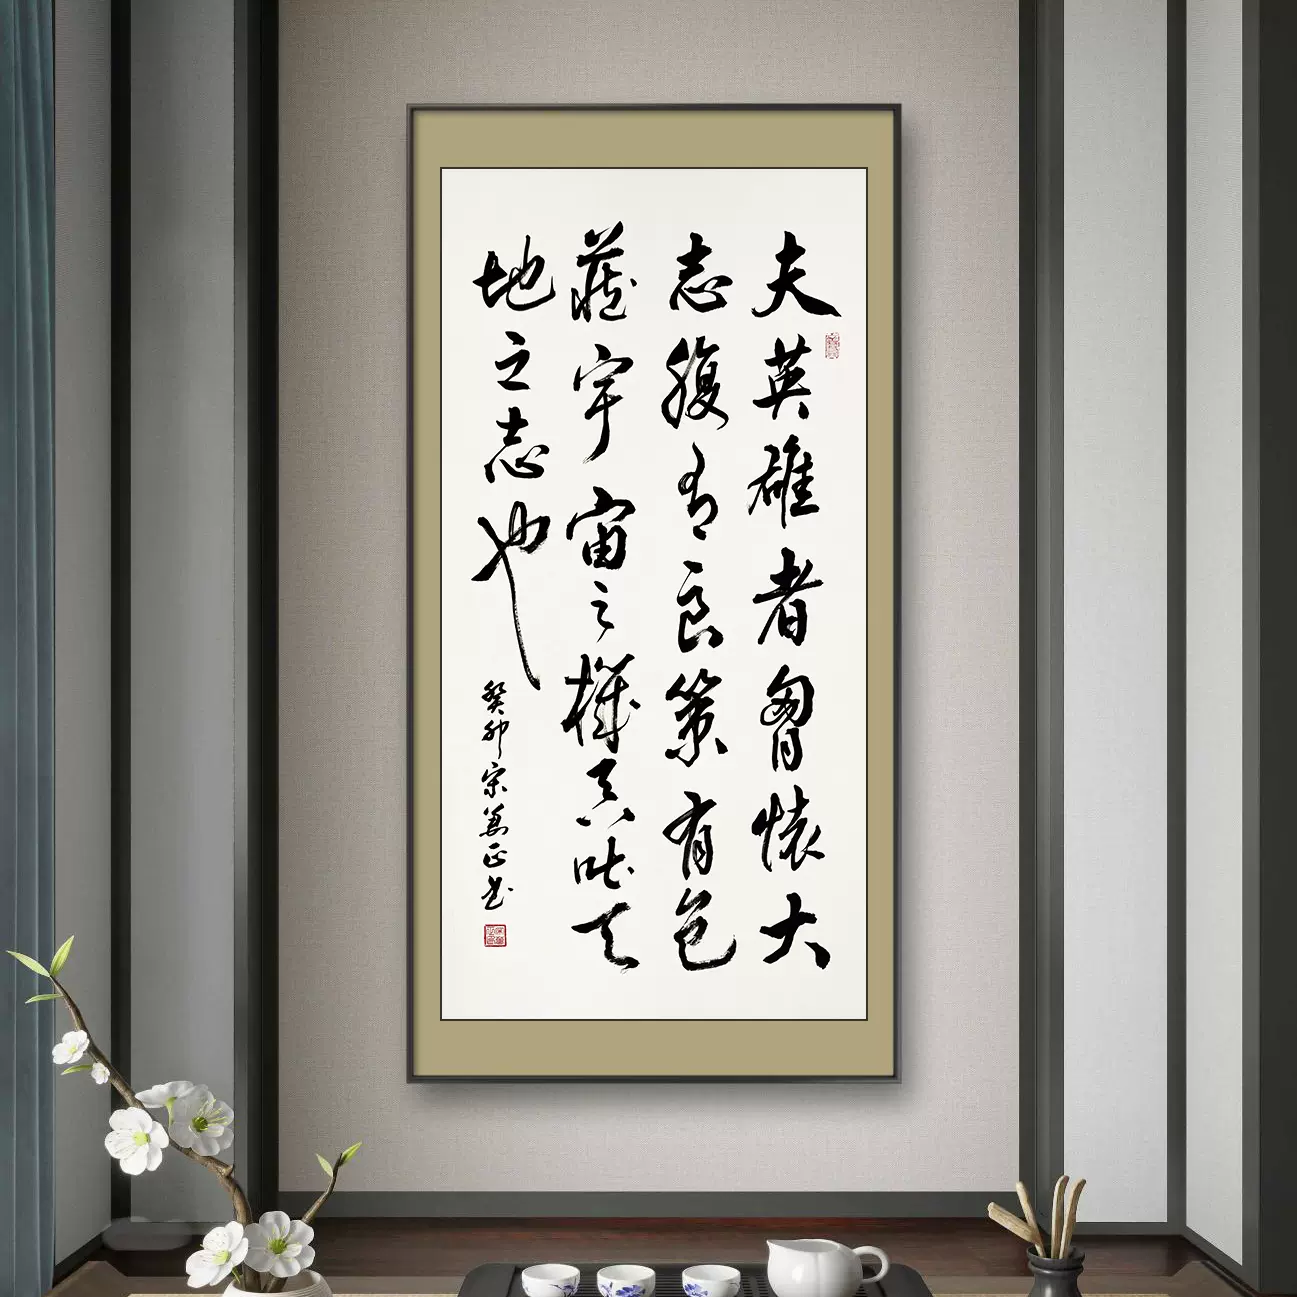 夫英雄者胷懷大
志腹有良策有包
藏宇宙之機吞吐天
地之志也
癸卯宋萬正书